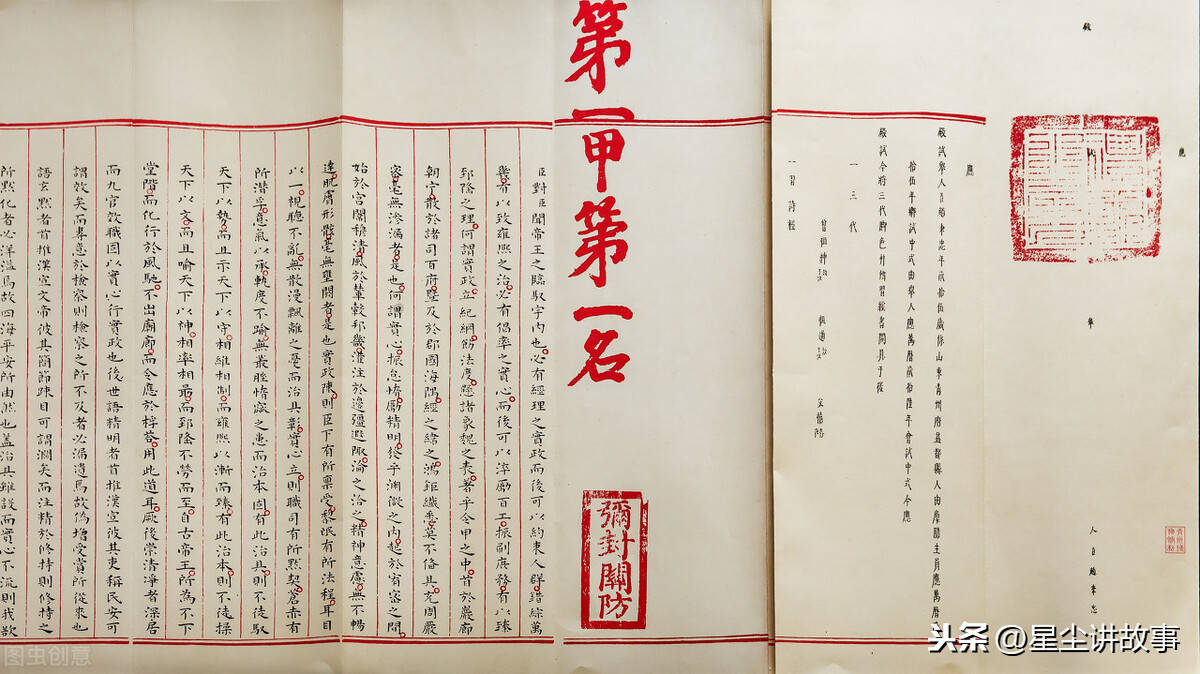 殿
應
舉
人臣趙秉忠
應
殿試舉人臣趙秉忠年貳拾伍歲係山東青州府益都縣人由廩膳生員應萬曆
拾伍年鄉試中式由舉人應萬曆貳拾陸年會試中式今應
殿試今將三代脚色并所習經書開具于後
一三代
曾祖
父僖
一習詩經
第一甲第一名
彌封關防
臣對臣聞帝王之臨馭宇內也必有經理之實政而後可以約束人群錯綜萬
幾有以致雍熙之治必有倡率之實心而後可以淬勵百工振刷庶務有以臻
郅隆之理何謂實政立紀綱飭法度懸諸象魏之表著乎令甲之中首於巖廊
朝宁散於諸司百府暨及於郡國海隅經之緯之鴻鉅纖悉莫不備具充周嚴
密毫無滲漏者是也何謂實心振怠惰勵精明發乎淵微之內起於宥密之間
始於宮闈穆清風於輦轂邦畿灌注於邊疆遐陬淪之洽之精神意慮無不暢
達肌膚形骸毫無壅閼者是也實政陳則臣下有所稟受黎氓有所法程耳目
以一視聽不亂無散漫飄離之憂而治具彰實心立則職司有所默契蒼赤有
所潛孚意氣以承軌度不踰無叢脞惰窳之患而治本固有此治具則不徒馭
天下以勢而且示天下以守相維相制而雍熙以漸而臻有此治本則不徒操
天下以文而且喻天下以神相率相最而郅隆不勞而至自古帝王所為不下
堂階而化行於風馳不出廟廊而令應於桴荅用此道耳厥後崇清淨者深居
而九官效職固以實心行實政也後世語精明者首推漢宣彼其吏稱民安可
謂效矣而專意於檢察則檢察之所不及者必漏遺焉故偽增受賞所從來也
語玄默者首推漢宣文帝彼其簡節疎目可謂闊矣而注精於修持則修持之
所默化者必洋溢焉故四海平安所由然也蓋治具雖設而實心不流則我欲
图虫创意
头条 @星尘讲故事